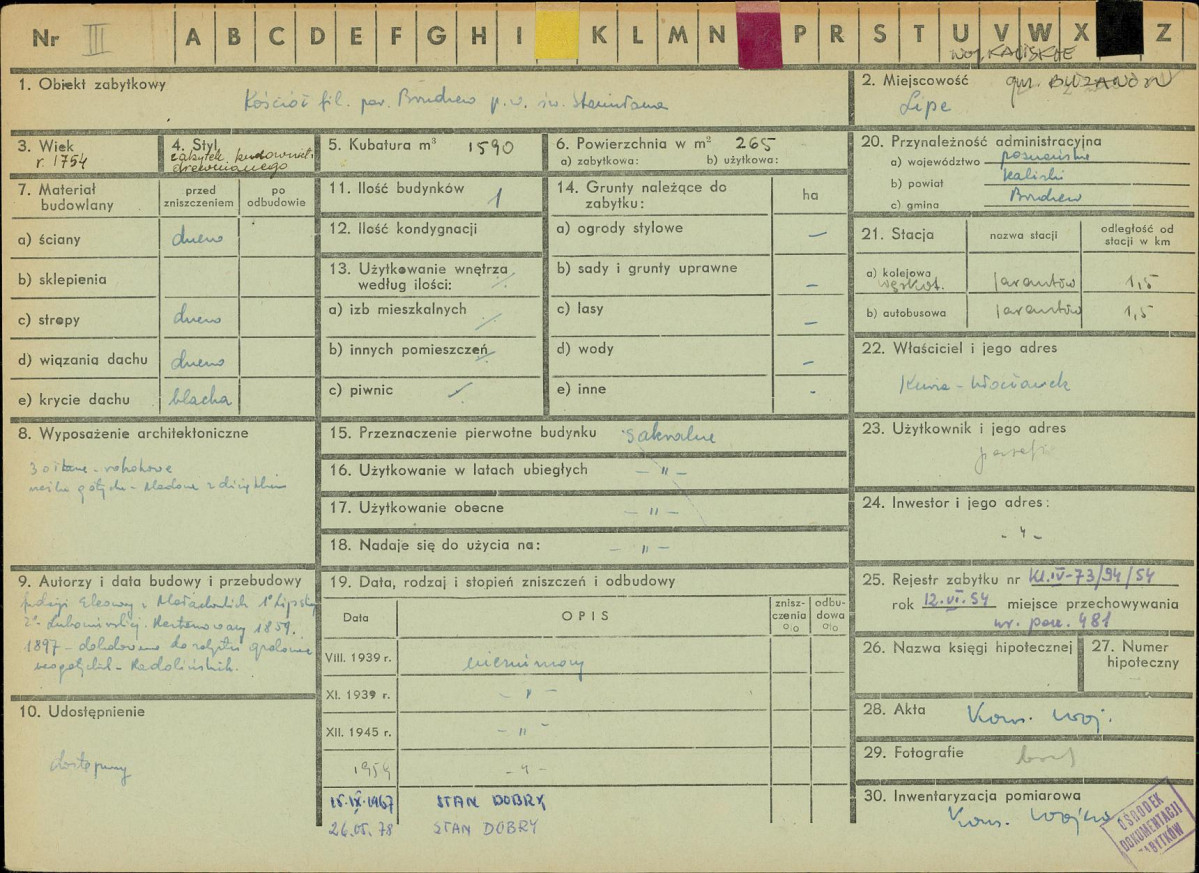 Nr III A B C D E F G H I K L M N P R S T U V W X Z
WOJ. KALISKIE
1. Obiekt zabytkowy
Kościół fil. par. Brudzew p. w. św. Stanisława
2. Miejscowość gm. BLIZANÓW
Lipe
3. Wiek
r. 1754
4. Styl
zabytek budownict.
drewnianego
5. Kubatura m³ 1590
6. Powierzchnia w m² 265
a) zabytkowa: b) użytkowa:
20. Przynależność administracyjna
a) województwo poznańskie
b) powiat kaliski
c) gmina Brudzew
7. Materiał budowlany
przed zniszczeniem
po odbudowie
a) ściany drewno
b) sklepienia
c) stropy drewno
d) wiązania dachu drewno
e) krycie dachu blacha
11. Ilość budynków 1
12. Ilość kondygnacji
13. Użytkowanie wnętrza
według ilości:
a) izb mieszkalnych
b) innych pomieszczeń
c) piwnic
14. Grunty należące do
zabytku:
ha
a) ogrody stylowe –
b) sady i grunty uprawne –
c) lasy –
d) wody –
e) inne -
21. Stacja
nazwa stacji
odległość od
stacji w km
a) kolejowa
wąskot. Jarantów 1,5
b) autobusowa Jarantów 1,5
22. Właściciel i jego adres
Kuria - Włocławek
23. Użytkownik i jego adres
parafia
24. Inwestor i jego adres:
- " -
8. Wyposażenie architektoniczne
3 ołtarze - rokokowe
gotycka - Madonna z dzieciątkiem
15. Przeznaczenie pierwotne budynku sakralne
16. Użytkowanie w latach ubiegłych - " -
17. Użytkowanie obecne - " -
18. Nadaje się do użycia na: - " -
9. Autorzy i data budowy i przebudowy
fundacji z Małachowskich 1° Lipskiej
2° Lubomirskiej. Restaurowany 1859.
1897 - dobudowano
neogotycką - Radolińskich.
19. Data, rodzaj i stopień zniszczeń i odbudowy
Data
OPIS
znisz-
czenia
%
odbu-
dowa
%
VIII. 1939 r. nieruszony
XI. 1939 r. - " -
XII. 1945 r. - " -
1954 - " -
15.IX.1967 STAN DOBRY
26.05.78 STAN DOBRY
25. Rejestr zabytku nr Kl.IV-73/94/54
rok 12.VI.54 miejsce przechowywania
nr. poz. 481
26. Nazwa księgi hipotecznej
27. Numer
hipoteczny
10. Udostępnienie
dostępny
28. Akta Kons. Woj.
29. Fotografie brak
30. Inwentaryzacja pomiarowa
Kons.
OŚRODEK
DOKUMENTACJI
ZABYTKÓW